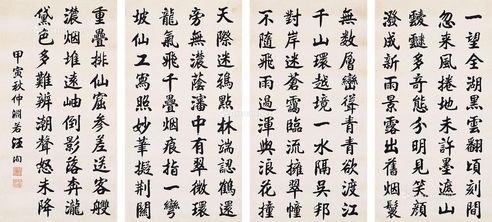 一望全湖黑雲翻頃刻間
忽來風捲地未許墨遮山
靉靆多奇態分明見笑顏
潑成新雨景露出舊烟鬟
無數層巒得青青欲渡江
千山環越境一水隔吳邦
對岸迷蒼靄臨流擁翠幢
不隨飛雨過渾與浪花撞
天際迷鴉點林端認鶴還
旁無濃蔭瀋中有翠微環
龍氣飛千疊烟痕指一彎
坡仙工寫照妙筆擬荆關
重疊排仙窟參差送客艘
濃烟堆遠岫倒影落奔瀧
黛色多難辨潮聲怒未降
甲寅秋仲淵若汪洵